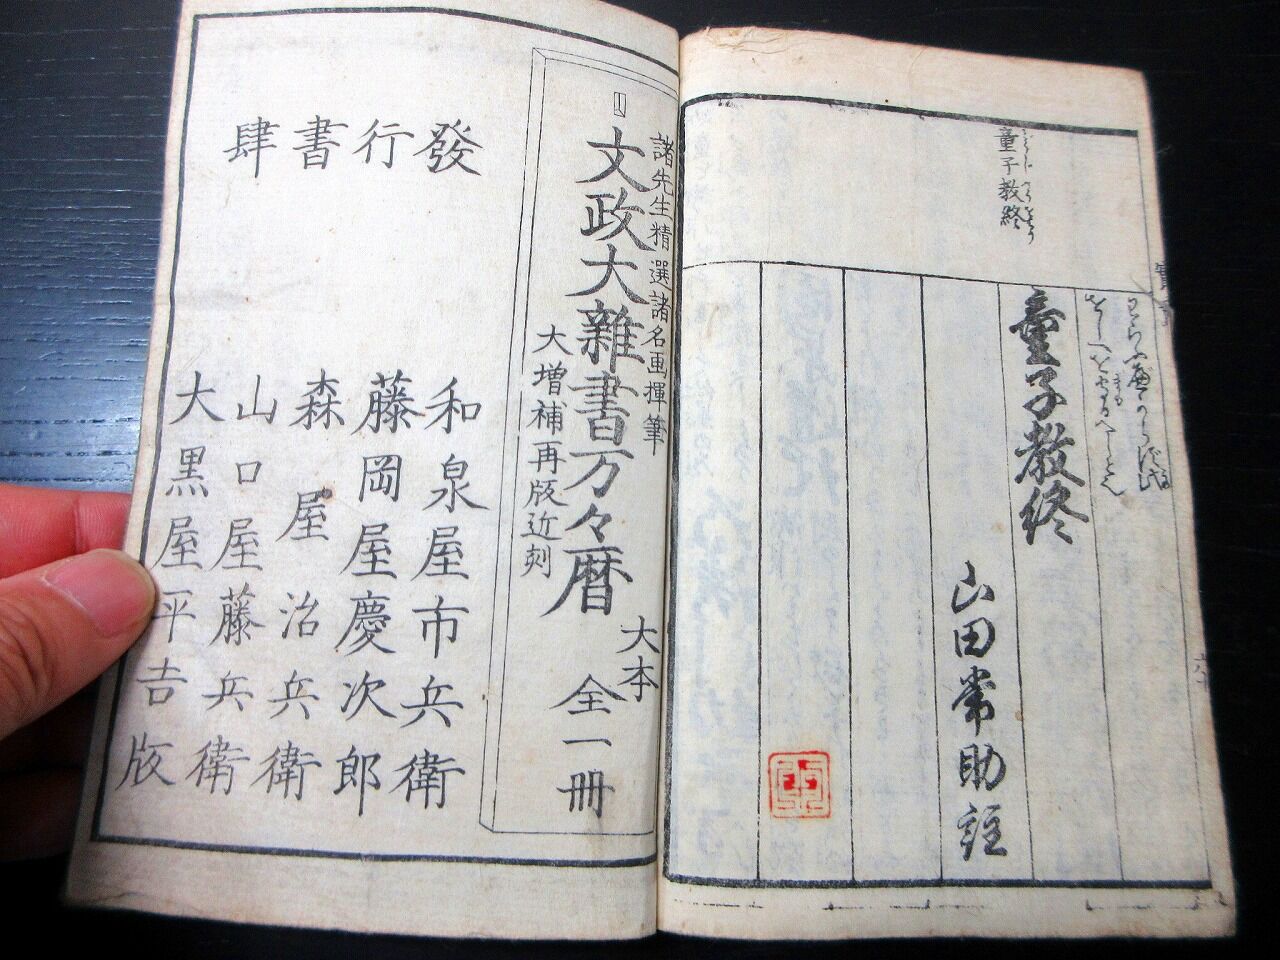 童子教終
童子教終
山田常助註
諸先生精選諸名画揮筆
文政大雑書万々暦
大本
全一冊
大増補再版近刻
發行書肆
和泉屋市兵衛
藤岡屋慶次郎
森屋治兵衛
山口屋藤兵衛
大黒屋平吉版